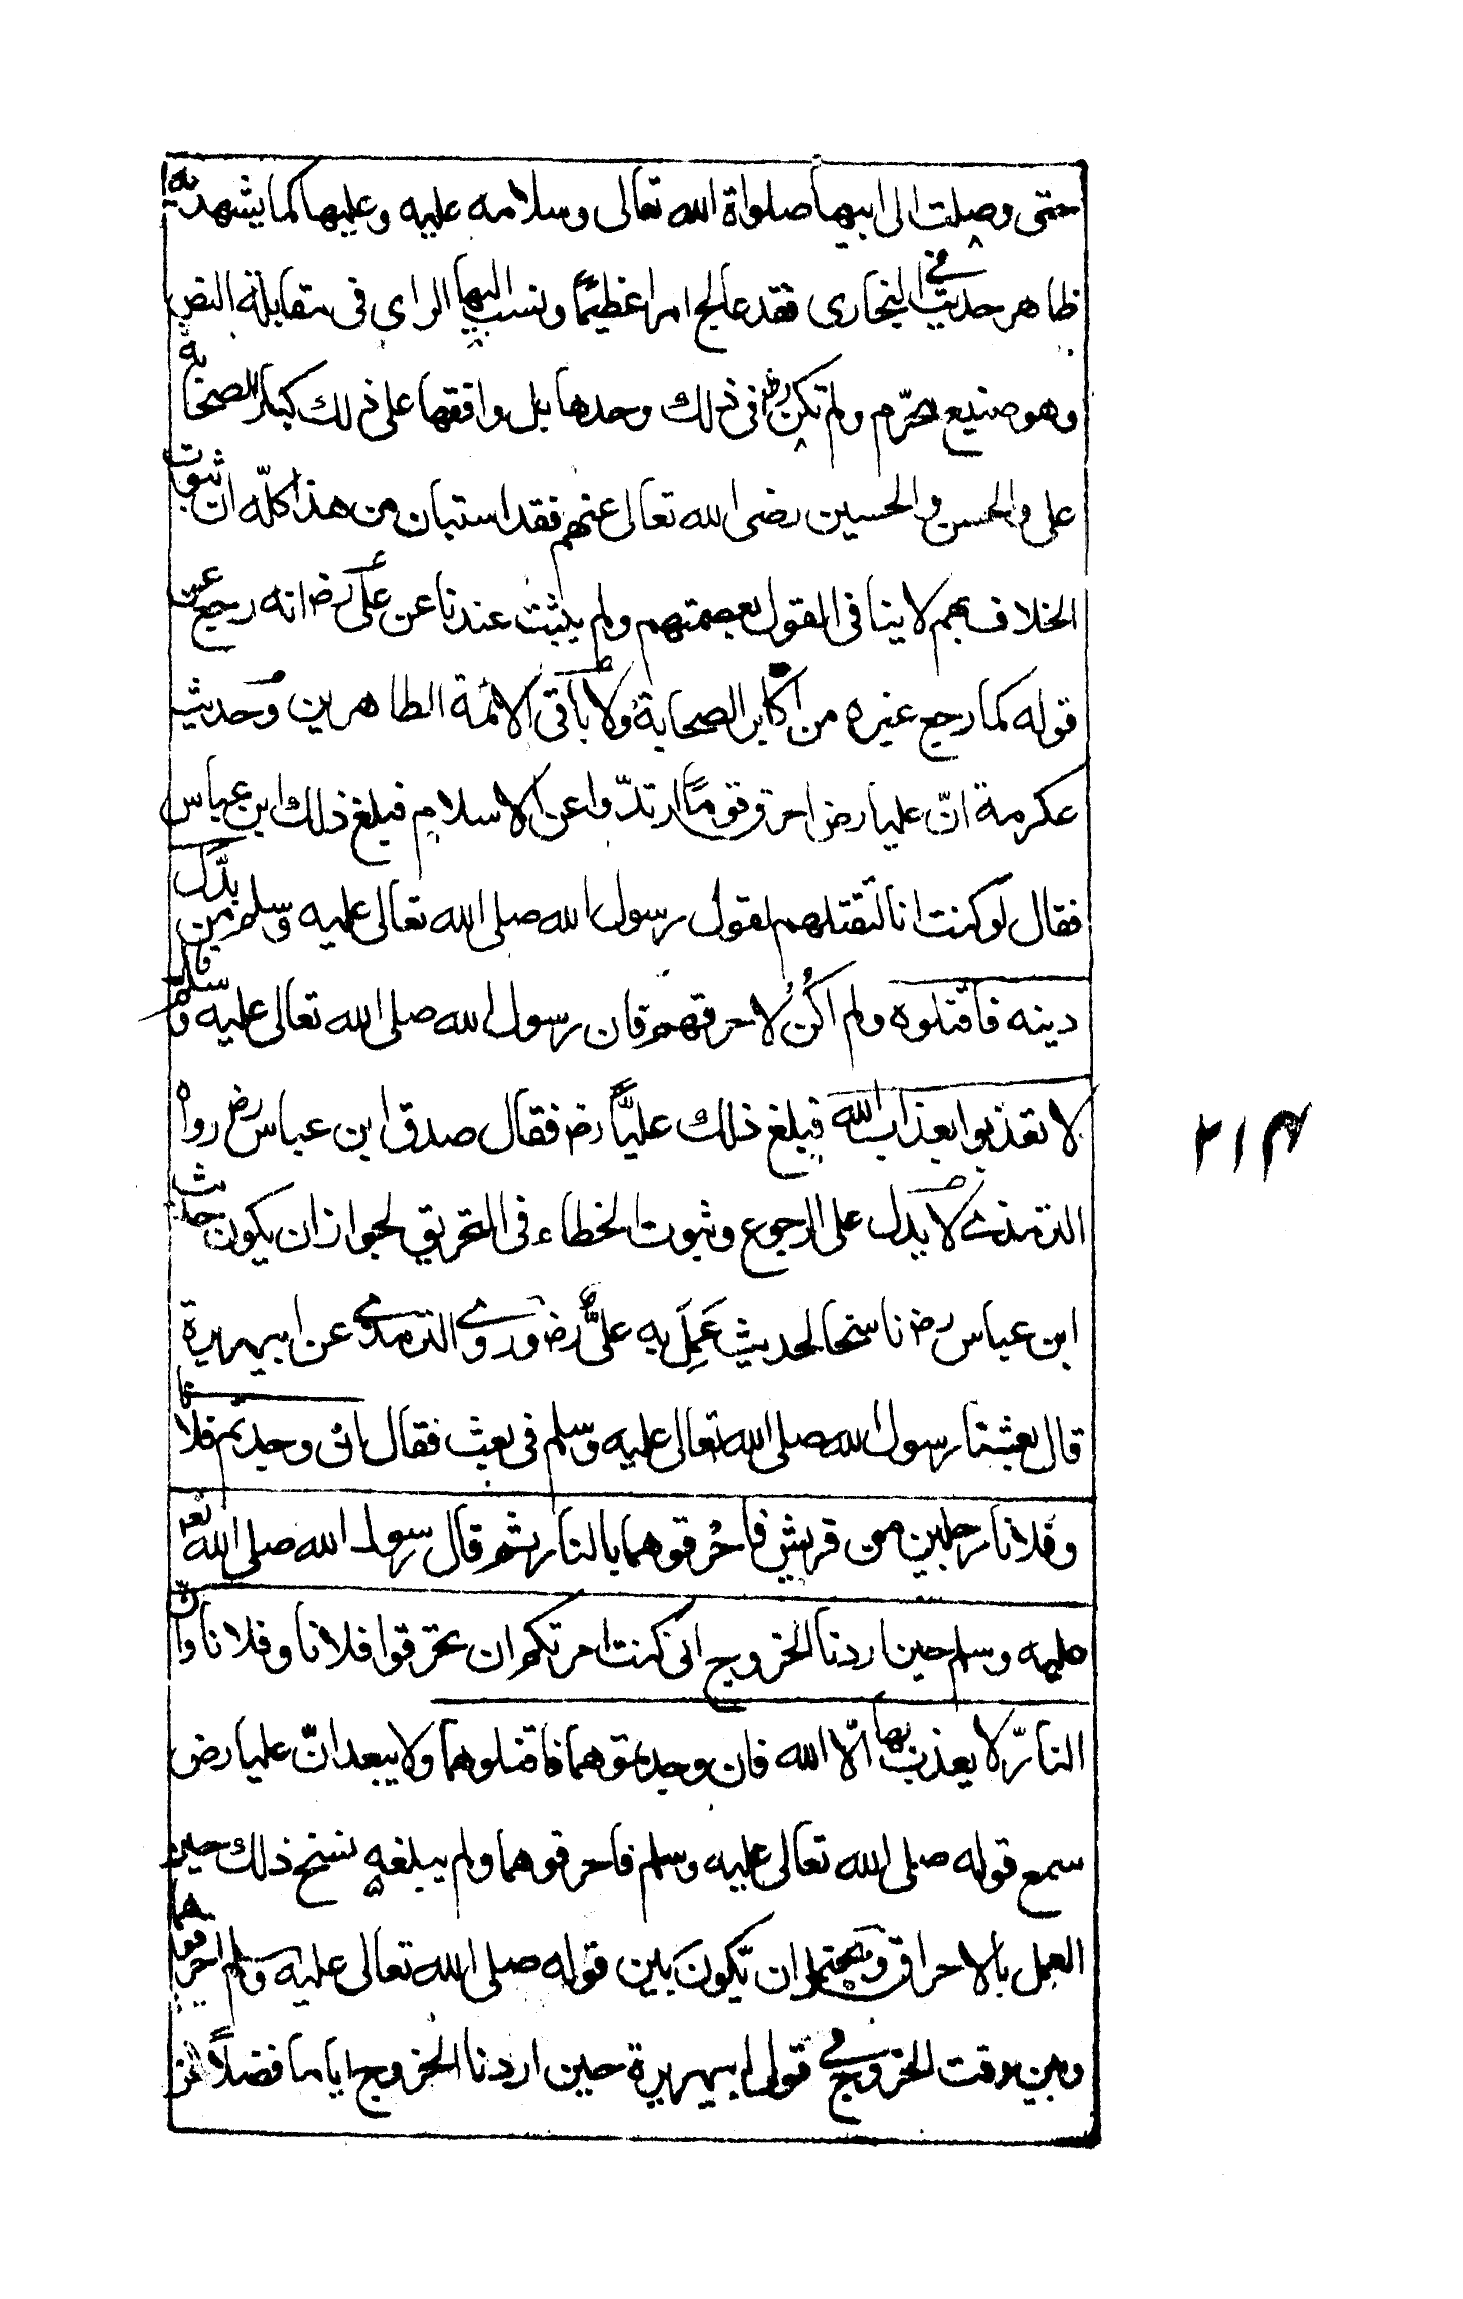 حتى وصلت الى ابيها صلواة الله تعالى وسلامه عليه وعليها كما يشهد به
ظاهر حديث في البخارى فقد عالج امرا عظيمًا ونسب اليها الراى فى مقابلة النص
وهو صنيع محرّم ولم تكن رض فى ذلك وحدها بل وافقها على ذلك كبار الصحابة
على والحسن والحسين رضى الله تعالى عنهم فقد استبان من هذا كلّه ان ثبوت
الخلاف بهم لا ينافى القول بعصمتهم ولم يثبت عندنا عن علىّ رض انه رجع عن
قوله كما رجع غيره من اكابر الصحابة ولا باقى الائمة الطاهرين وحديث
عكرمة انّ عليا رض احرق قومًا ارتدّوا عن الاسلام فبلغ ذلك ابن عباس
فقال لو كنت انا لقتلتهم لقول رسول الله صلى الله تعالى عليه وسلم من بدّل
دينه فاقتلوه ولم اكُنْ لاحرقهم فان رسول الله صلى الله تعالى عليه وسلم قال
لا تعذبوا بعذاب الله فبلغ ذلك عليًّا رض فقال صدق ابن عباس رض رواه
الترمذى لا يدل على الرجوع وثبوت الخطاء فى التحريق لجواز ان يكون حديث
ابن عباس رض ناسخا لحديث عَمِلَ به علىٌّ رض وروى الترمذى عن ابى هريرة
قال بعثنا رسول الله صلى الله تعالى عليه وسلم فى بعث فقال ان وجدتم فلانا
وفلانا رجلين من قريش فاحْرقوهما بالنار ثم قال رسول الله صلى الله تعـ
عليه وسلم حين اردنا الخروج انى كنت امرتكم ان تحرقوا فلانا وفلانا وانّ
النار لا يعذب بها الّا الله فان وجدتموهما فاقتلوهما ولا يبعد انّ عليا رض
سمع قوله صلى الله تعالى عليه وسلم فاحرقوهما ولم يبلغه نسخ ذلك حين
العمل بالاحراق ويحتمل ان يكون بين قوله صلى الله تعالى عليه وسلم احرقوهما
وبين وقت الخروج فى قول ابى هريرة حين اردنا الخروج اياما فضلًا عن
٢١٤